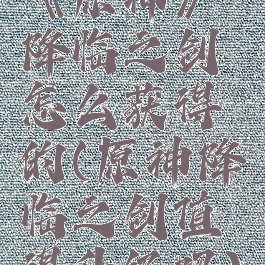 《原神》
降临之剑
怎么获得
的(原神降
临之剑值